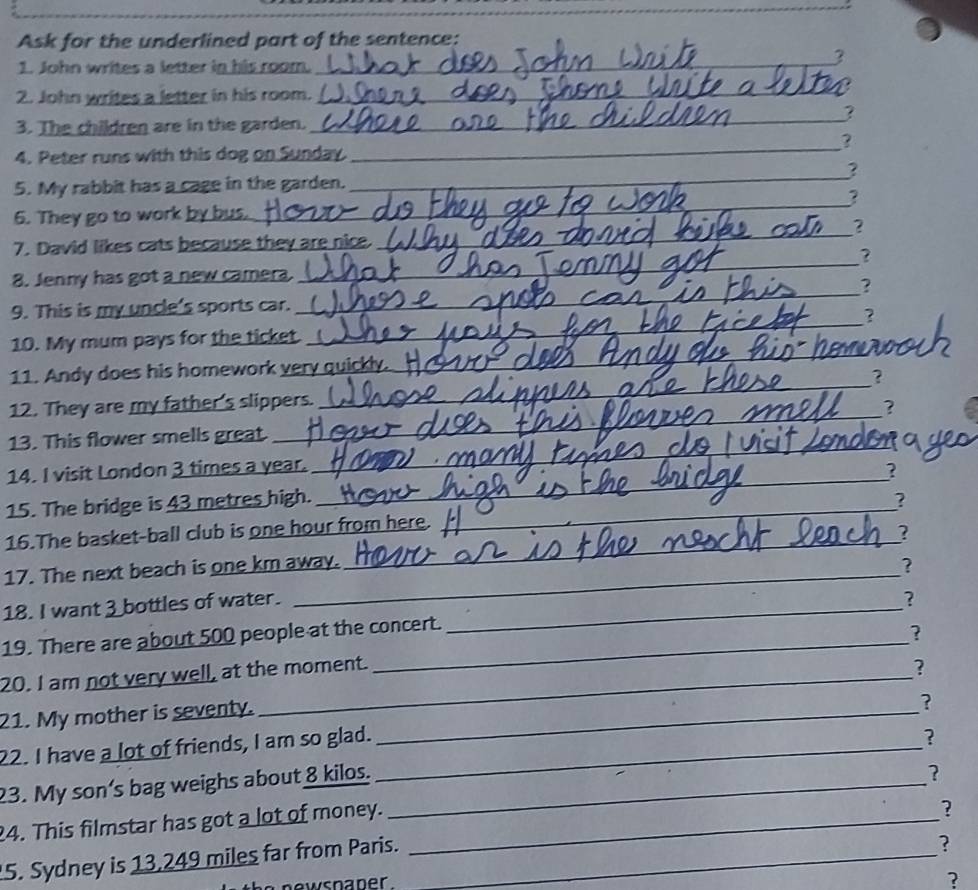 Ask for the underlined part of the sentence:
1. John writes a letter in his room. What does John Write ?
2. John writes a letter in his room. Where does Jhone Write a letter
3. The children are in the garden. Where are the children ?
4. Peter runs with this dog on Sunday. ?
5. My rabbit has a cage in the garden. ?
6. They go to work by bus. How do they goe to work ?
7. David likes cats because they are nice. Why does david like cats ?
8. Jenny has got a new camera. What has Jenny got ?
9. This is my uncle's sports car. Whose spots car is this ?
10. My mum pays for the ticket. pays for the ?
11. Andy does his homework very quickly. does Andy his
12. They are my father's slippers. Whose slippers are these ?
13. This flower smells great. does this flower smell ?
14. I visit London 3 times a year. many times do I visit London a yea
15. The bridge is 43 metres high. high is the bridge ?
16.The basket-ball club is one hour from here. H ?
17. The next beach is one km away. is the ?
18. I want 3 bottles of water. ?
19. There are about 500 people at the concert. ?
20. I am not very well, at the moment. ?
21. My mother is seventy. ?
22. I have a lot of friends, I am so glad. ?
23. My son's bag weighs about 8 kilos. ?
24. This filmstar has got a lot of money. ?
25. Sydney is 13,249 miles far from Paris. ?
the newspaper. ?